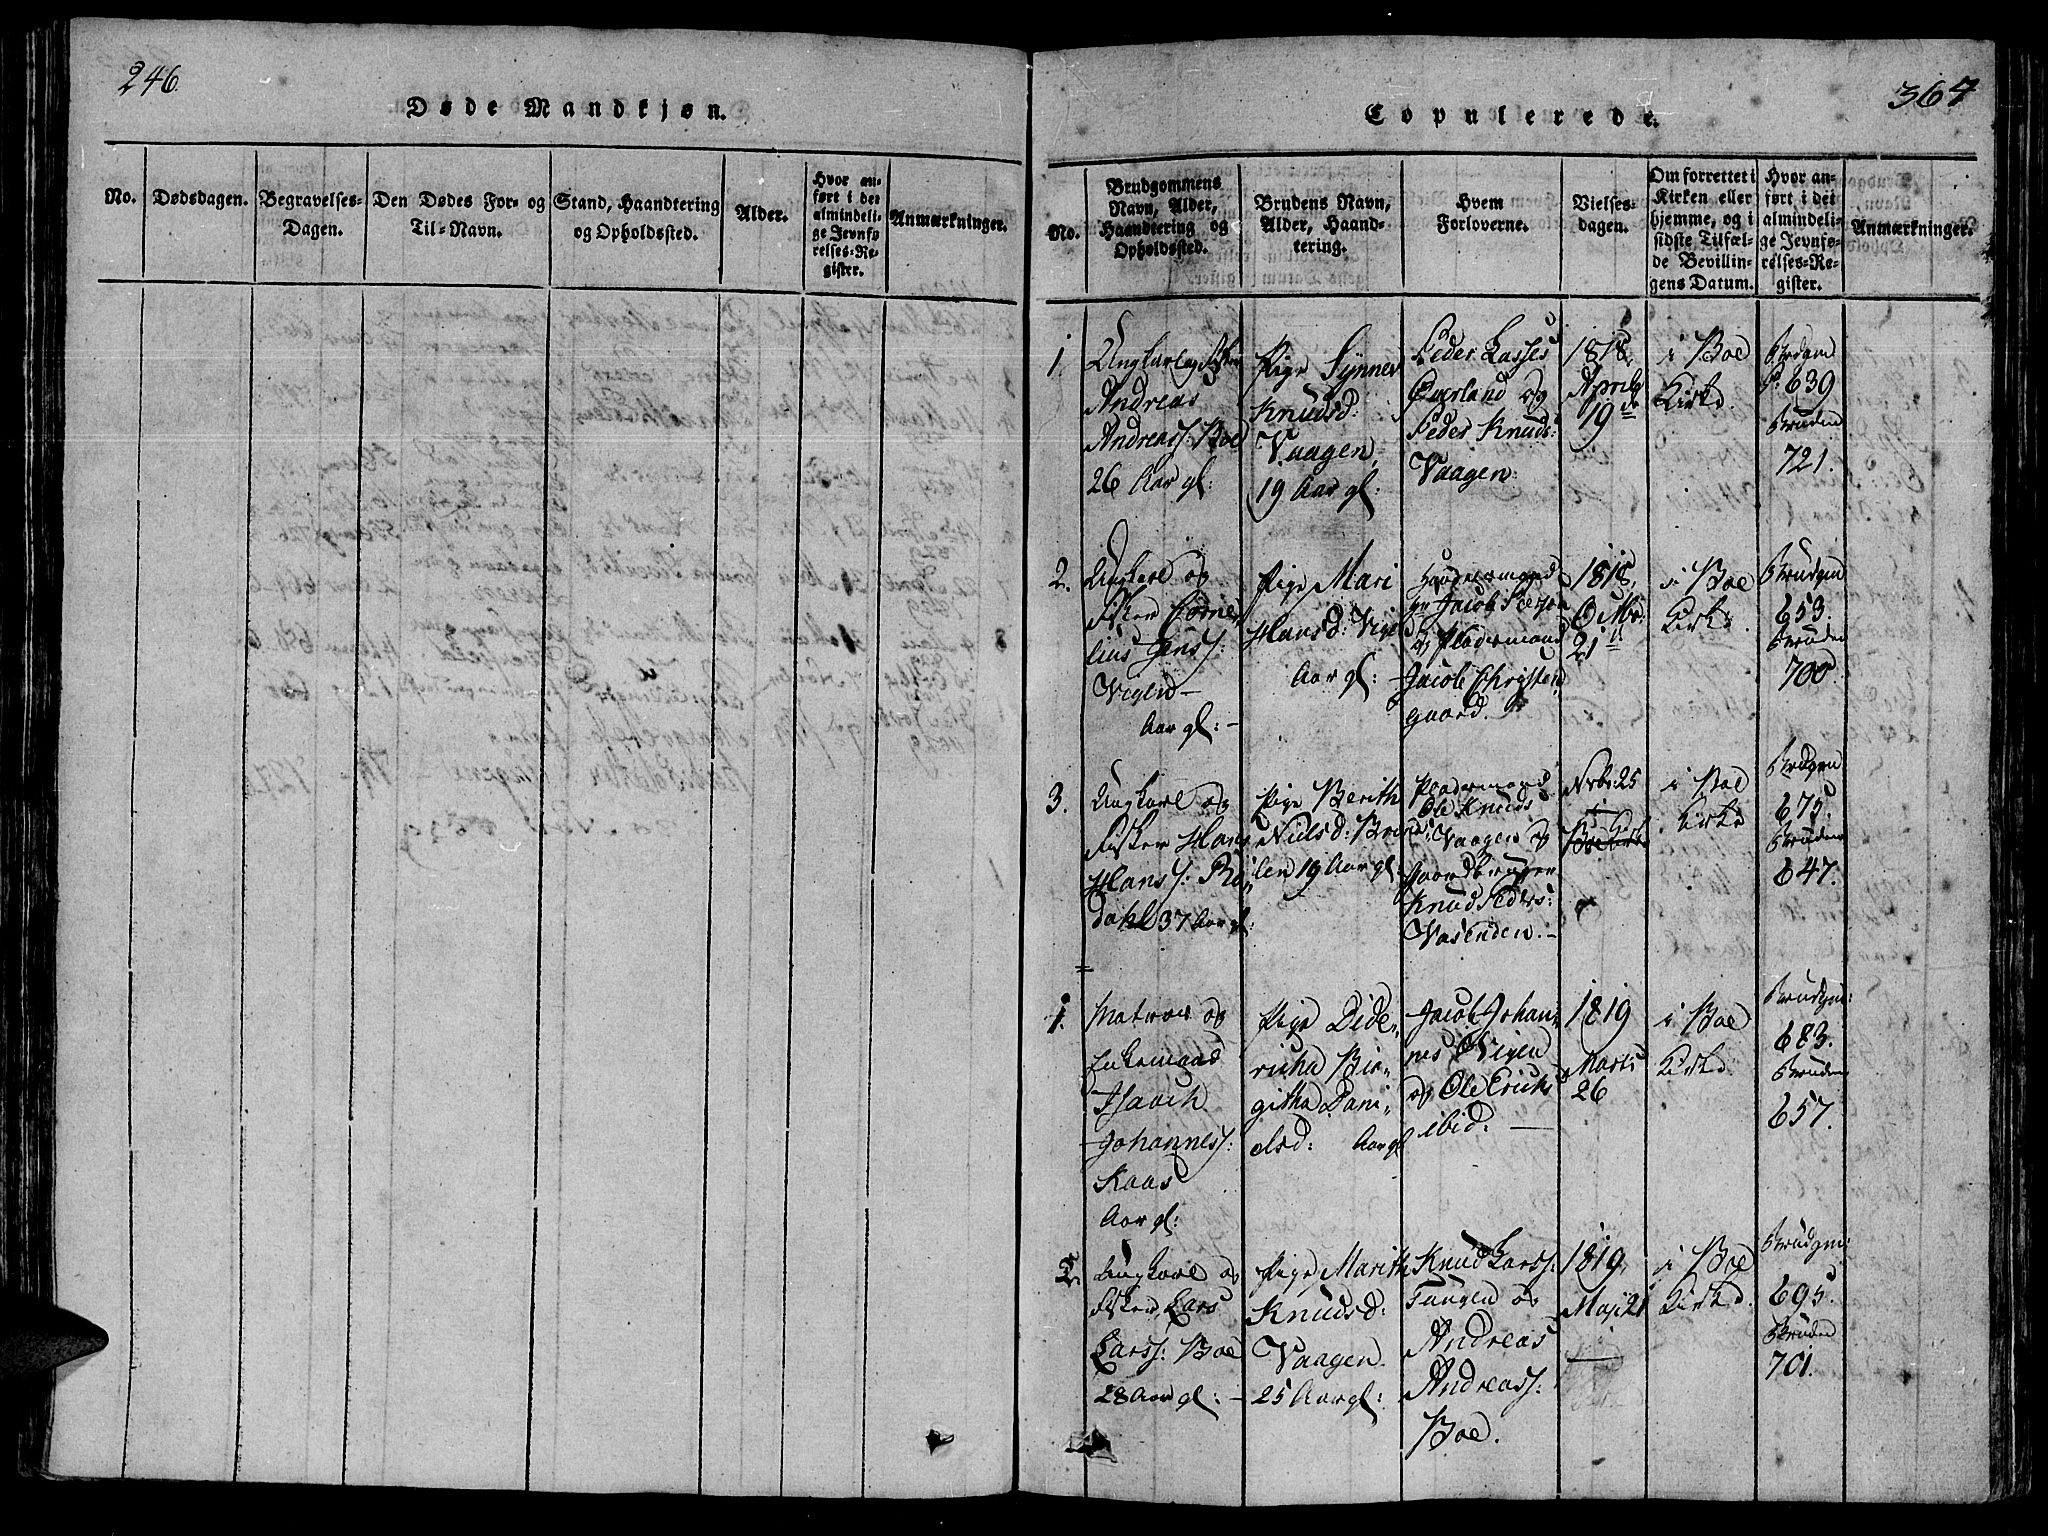 246.
Døde Mandkjøn.
No.
Dødsdagen.
Begravelses-
Dagen.
Den Dødes For- og
Til-Navn.
Stand, Haandtering
og Opholdssted.
Alder.
Hvor an-
ført i det
almindeli-
ge Jevnfø-
relses-Re-
gister.
Anmærkninger.
367
Copulerede.
No.
Brudgommens
Navn, Alder,
Haandtering og
Opholdssted.
Brudens Navn,
Alder, Haand-
tering.
Hvem
Forloverne.
Vielses-
dagen.
Om forrettet i
Kirken eller
hjemme, og i
sidste Tilfæl-
de Bevillin-
gens Datum.
Hvor an-
ført i det
almindeli-
ge Jevnfø-
relses-Re-
gister.
Anmærkninger.
1.
Ungkarl og
Andreas
Andreass: Boe
26 Aar gl:
Pige Synnev
Knudsd:
Vaagen,
19 Aar gl:
Peder Lasses
Øverland og
Peder Knuds:
Vaagen
1818,
April
19de
i Boe
Kirke.
639
Bruden
721.
2.
Ungkarl og
Fisker Corne-
lius Jens s:
Vigen –
Aar gl: –
Pige Mari
Hansd: Vige
Aar gl:
Jacob
og Pladsmand
Jacob Christen
gaard.
1818,
Octbr.
21de
i Boe
Kirke.
Brudgm
653.
Bruden
700.
3.
Ungkarl og
Fisker Hans
Hans s: Rø-
dahl 37 Aar gl:
Pige Berith
Nielsd:
len 19 Aar gl:
Pladsmand
Ole Knuds
Vaagen og
Gaardbruger
Knud Peders:
Vasenden. –
Nvbr: 25
i
Boe Kirke
i Boe
Kirke
Brudgm
675.
Bruden
647.
1.
Matros og
Enkemand
Isaach
Johanness:
Kaas
Aar gl:
Pige Dide-
richa Bir-
githa Dani-
elsd: Aar gl
Jacob Johan-
nes Vigen
og Ole Erichs
ibid: –
1819
Marts
26
i Boe
Kirke.
Brudgm:
683.
Bruden
657.
2.
Ungkarl og
Fisker Lars
Larss: Boe
28 Aar gl: –
Pige Marith
Knudsd:
Vaagen.
25 Aar gl:
Knud Larss:
Tangen og
Andreas
Andreass:
Boe.
1819,
Maji 21
i Boe
Kirke.
Brudgm:
695.
Bruden
701.